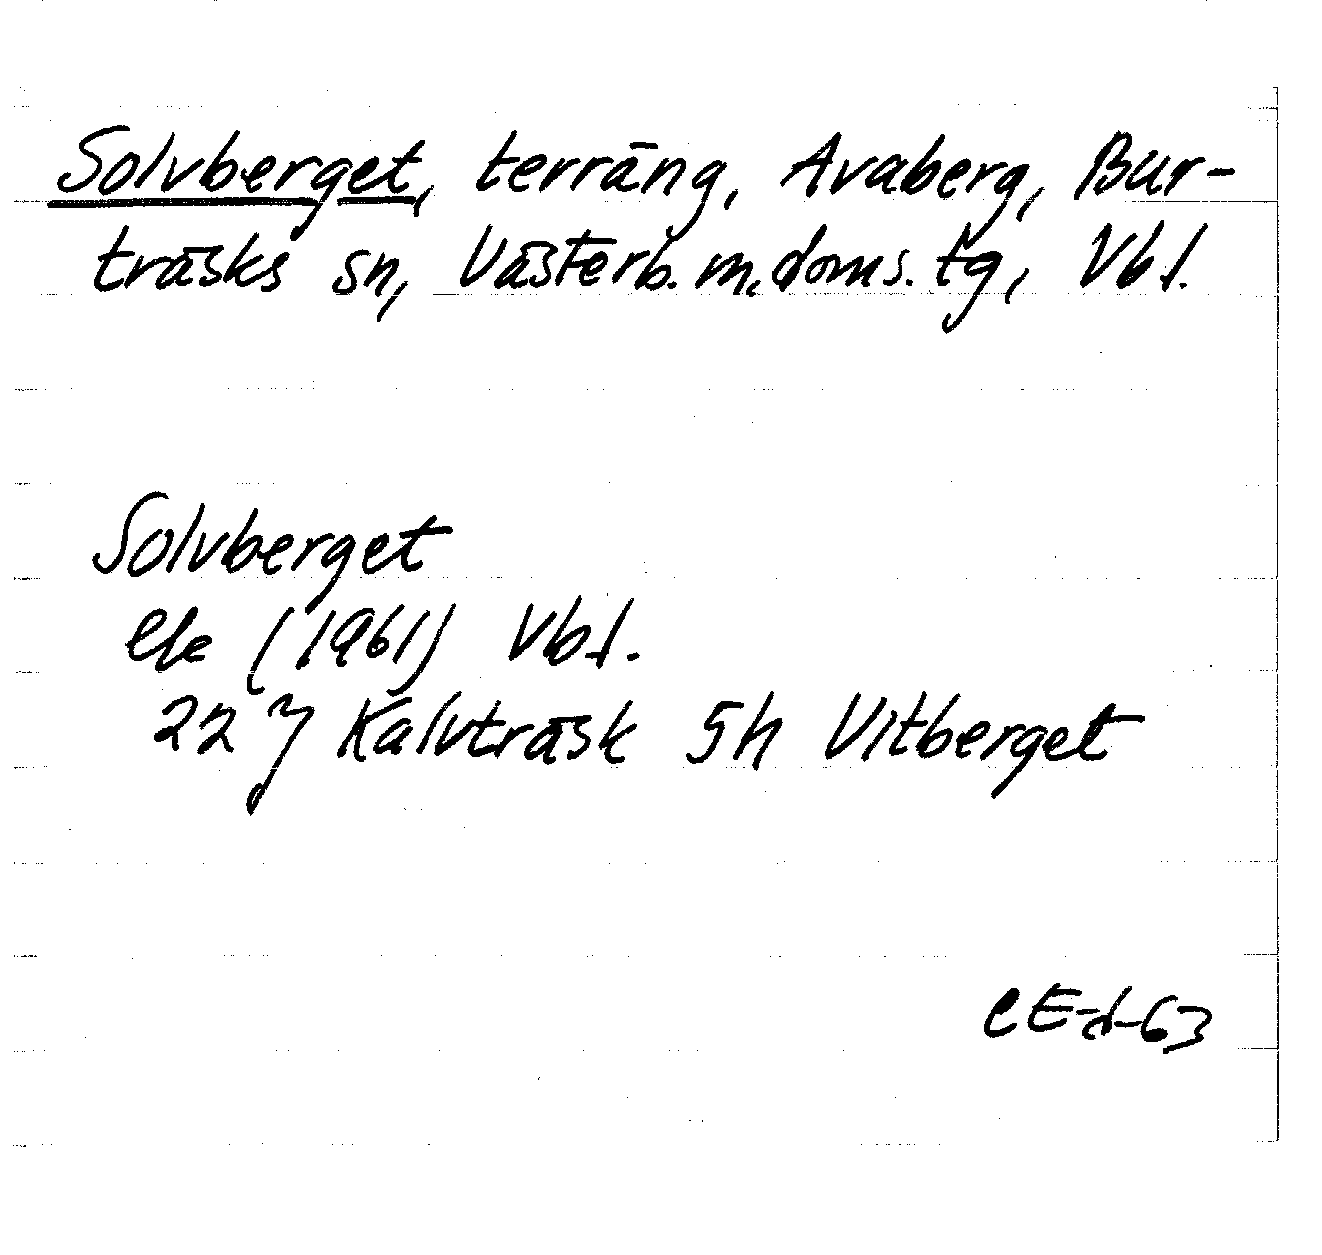 Solvberget, terräng, Avaberg, Bur-
träsks sn, Västerb. m. doms. tg, Vbl.
Solvberget
ek (1961) Vbl.
22 J Kalvträsk 5h Vitberget
CE-d-63